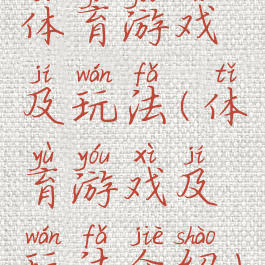 体育游戏
jí wán fǎ tǐ
及玩法(体
yù yóu xì jí
育游戏及
wán fǎ jiè shào
玩法介绍)